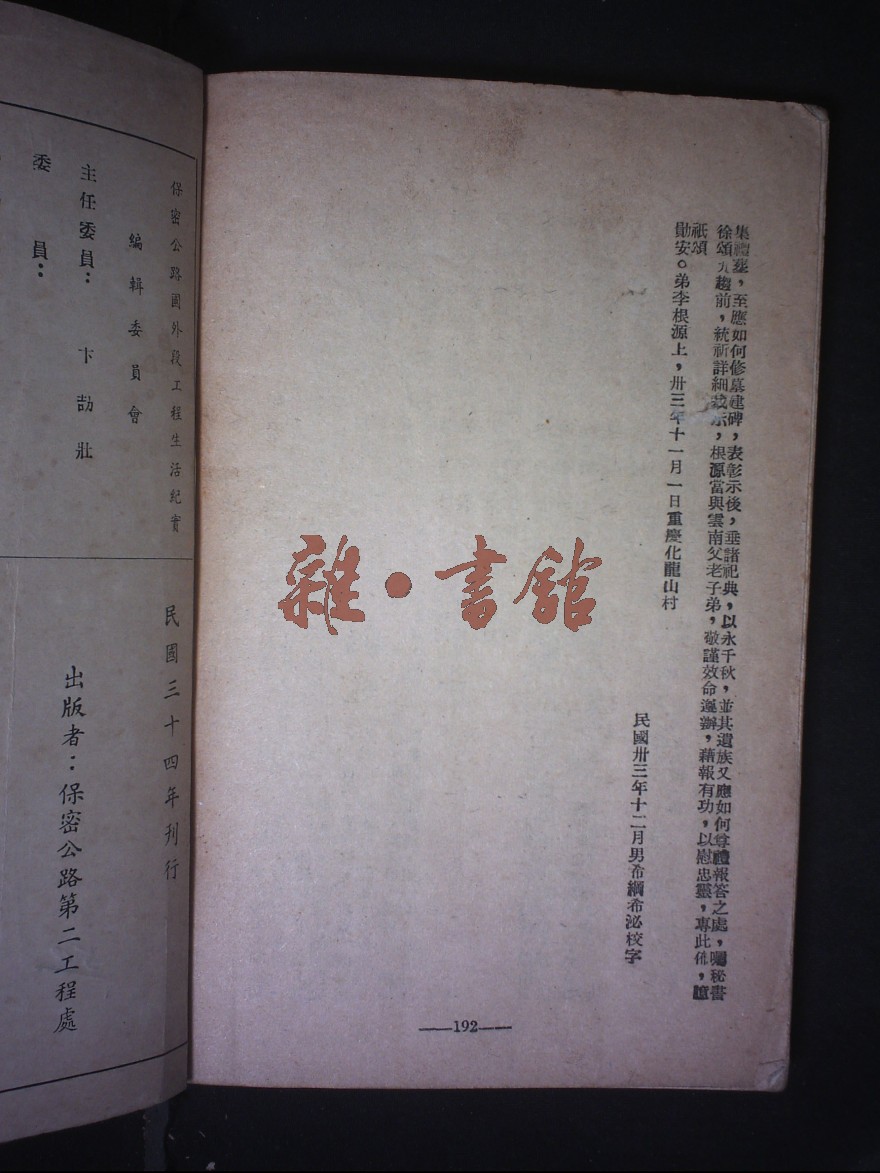 集禮葬，至應如何修墓建碑，表彰示後，垂諸祀典，以永千秋，並其遺族又應如何尊禮報答之處，囑秘書
徐頌九趨前，統祈詳細裁示，根源當與雲南父老子弟，敬謹效命遵辦，藉報有功，以慰忠靈，專此佈，
祇頌
勛安。弟李根源上，卅三年十一月一日重慶化龍山村
民國卅三年十二月男希綱希泌校字
——192——
雜·書館
保密公路國外段工程生活紀實
編輯委員會
主任委員：卞喆壯
委員：
民國三十四年刊行
出版者：保密公路第二工程處